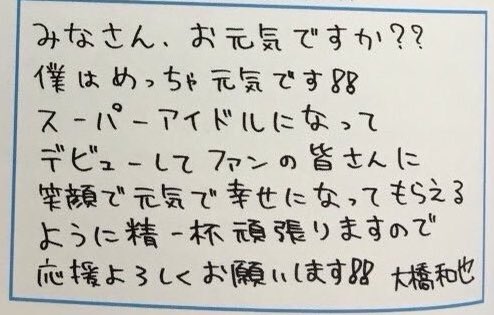 みなさん、お元気ですか??
僕はめっちゃ元気です!!
スーパーアイドルになって
デビューしてファンの皆さんに
笑顔で元気で幸せになってもらえる
ように精一杯頑張りますので
応援よろしくお願いします!! 大橋和也